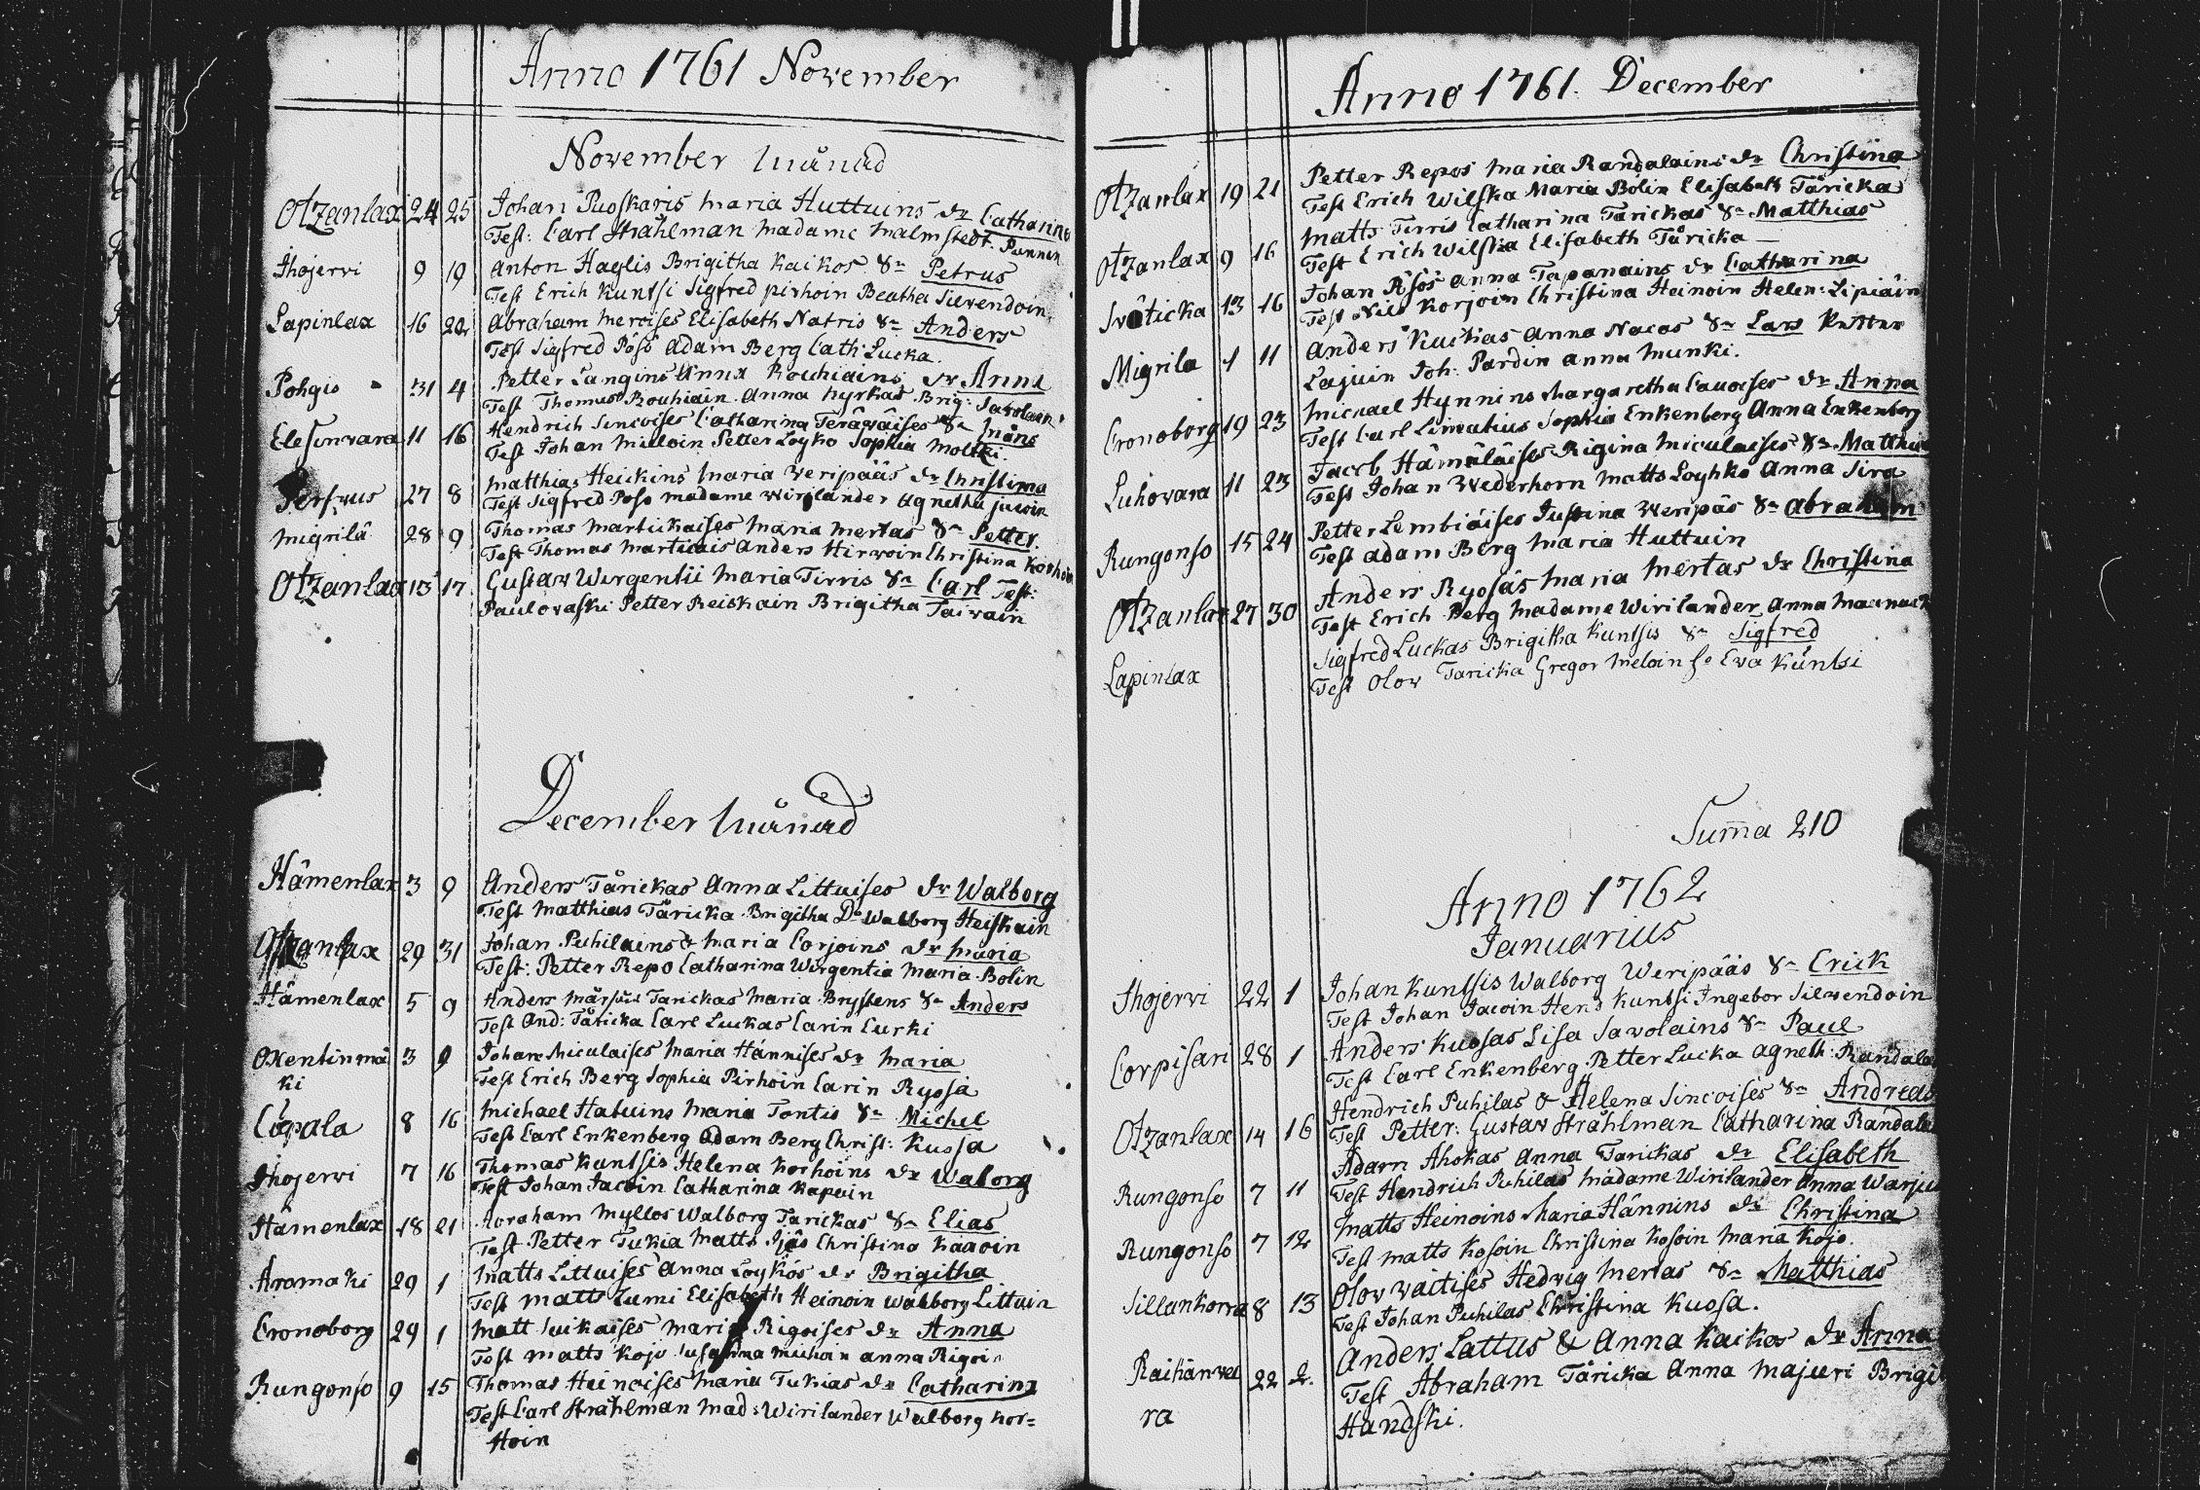 Anno 1761 November
November Månad
Otzanlax 24 25 Johan Puoskaris Maria Huttuins dr Catharina
Test: Carl Stråhlman Madame Malmstedt. Punnin
Ihojervi 9 19 Anton Haglis Brigitha Kaikos Sn Petrus
Test Erich Kuntsi Sigfred pirhoin Beatha Silvendoin
Lapinlax 16 20 Abraham Meroises Elisabeth Natris Sn Anders
Test Sigfred Påsö Adam Berg Cath: Lucka.
Pohgis 31 4 Petter Langins Anna Rouhiains dr Anna
Test Thomas Rouhiain Anna Kyrkas Brig: Savolain
Elesenvara 11 16 Hendrich Sincoises Catharina Teräväises Sn Måns
Test Johan Mieloin Petter Loyko Sophia Moltki.
27 8 Matthias Heickins Maria Weripääs dr Christina
Test Sigfred Poso Madame Wirilander Agnetha
Migrilä 28 9 Thomas Martickaises Maria Mertas Sn Petter
Test Thomas Marticais Anders Hirwoin Christina Korhoin
Otzanlax 13 17 Gustav Wirgentii Maria Tirris Sn Carl Test:
Paulovaski Petter Reiskain Brigitha Taivain
December Månad
Hämenlax 3 9 Anders Tårickas Anna Littuises dr Walborg
Test Matthias Tåricka Brigitha Do Walborg Heiskain
Otzanlax 29 31 Johan Puhilains & Maria Corjoins dr Maria
Test: Petter Repo Catharina Wirgentia Maria Bolin
Hämenlax 5 9 Anders Tarickas Maria Brystens Sn Anders
Test And: Tåricka Carl Luckas Carin Curki
Oxentinmä 3 9 Johan Miculaises Maria Hännises dr Maria
ki Test Erich Berg Sophia Pirhoin Carin Ryösä
Copala 8 16 Michael Hatuins Maria Tontis Sn Michel
Test Carl Enkenberg Adam Berg Christ: Kuosa
Ihojervi 7 16 Thomas Kuntsis Helena Korhoins dr Waborg
Test Johan Jacoin Catharina Kapain
Hämenlax 18 21 Abraham Myllos Walborg Tarickas Sn Elias
Test Petter Tukia Matts Ijäs Christina Kaaoin
Aromaki 29 1 Matts Littuises Anna Loykös dr Brigitha
Test Matts Lumi Elisabeth Heinoin Walborg Littuin
Cronoborg 29 1 Matt Suikaises Maria Rigoises dr Anna
Test Matts Kojo Susanna Michoin Anna Rigoin
Rungonso 9 15 Thomas Heinoises Maria Tukias dr Catharina
Test Carl Stråhlman Mad: Wirilander Walborg Kor=
Hoin
Anno 1761. December
Otzanlax 19 21 Petter Repos Maria Randalains dr Christina
Test Erich Wilska Maria Bolin Elisabeth Tåricka
Otzanlax 9 16 Matts Tirris Catharina Tarickas Sn Matthias
Test Erich Wilska Elisabeth Tåricka
Iväticka 13 16 Johan Påsös Anna Tapanains dr Catharina
Test Nils Korjoin Christina Heinoin Helen: Lipiäin
Migrila 1 11 Anders Kaikas Anna Nacas Sn Lars Petter
Lajuin Joh: Pardin Anna Munki.
Cronoborg 19 23 Michael Hynnins Margaretha Cauoises dr Anna
Test Carl Limatius Sophia Enkenberg Anna Enkenberg
Luhovara 11 23 Jacob Hämäläises Rigina Miculaises Sn Matthias
Test Johan Wederhorn Matts Loyhko Anna Sira
Rungonso 15 24 Petter Lembiäises Justina Weripäs Sn Abraham
Test Adam Berg Maria Huttuin
Otzanlax 27 30 Anders Ryösäs Maria Mertas dr Christina
Test Erich Berg Madame Wirilander Anna
Lapinlax Sigfred Luckas Brigitha Kuntsis Sn Sigfred
Test Olov Taricka Gregor Meloin So Eva Kuntsi
Suma 210
Anno 1762
Januarius
Ihojervi 22 1 Johan Kuntsis Walborg Weripääs Sn Erick
Test Johan Jacoin Hens Kuntsi Ingebor Silvendoin
Corpisari 28 1 Anders Kuosas Lisa Savolains Sn Paul
Test Carl Enkenberg Petter Lucka Agneth: Randala
Otzanlax 14 16 Hendrich Puhilas & Helena Sincoises Sn Andreas
Test Petter: Gustav Stråhlman Catharina Randala
Rungonso 7 11 Adam Ahokas Anna Tarickas dr Elisabeth
Test Hendrich Puhilas Madame Wirilander Anna
Rungonso 7 12 Matts Heinoins Maria Hännins dr Christina
Test Matts Kosoin Christina Kosoin Maria Kojo.
Sillankorva 8 13 Olov Waitises Hedvig Mertas Sn Matthias
Test Johan Puhilas Christina Kuosa.
Raihänva 22 2. Anders Lattus & Anna Kaikos dr Anna
ra Test Abraham Tåricka Anna Majuri Brigi
Handski.